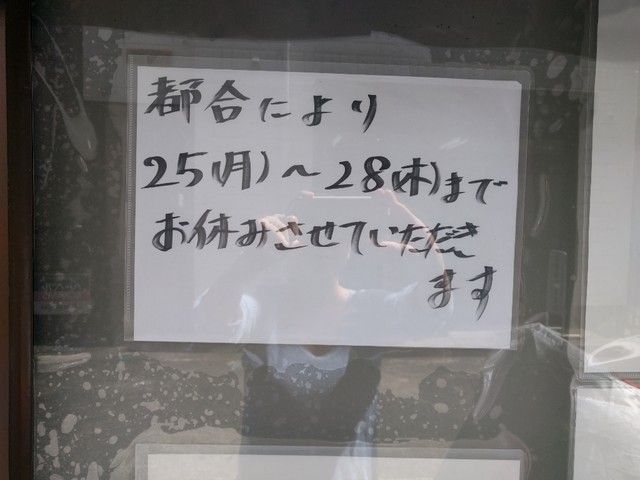 都合により
25(月)～28(木)まで
お休みさせていただき
ます